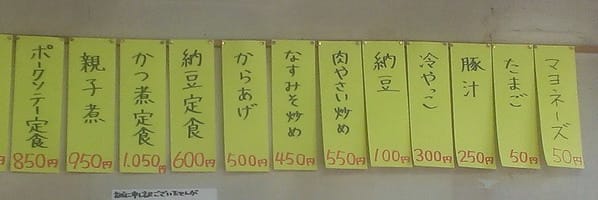 マヨネーズ 50円
たまご 50円
豚汁 250円
冷やっこ 300円
納豆 100円
肉やさい炒め 550円
なすみそ炒め 450円
からあげ 500円
納豆定食 600円
かつ煮定食 1.050円
親子煮 950円
ポークソテー定食 850円
円